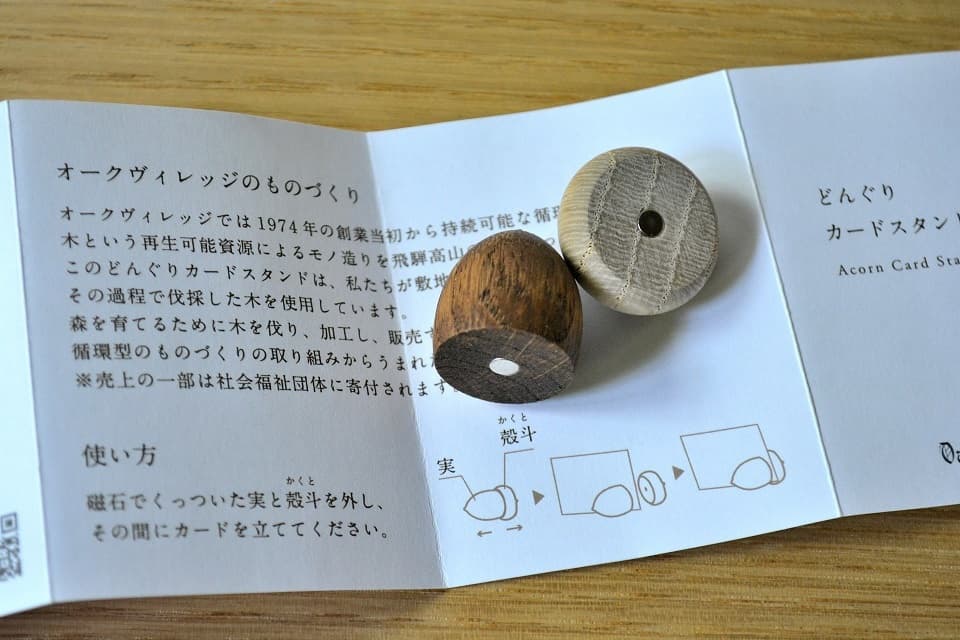 オークヴィレッジのものづくり
オークヴィレッジでは1974年の創業当初から持続可能な循
木という再生可能資源によるモノ造りを飛騨高山の
このどんぐりカードスタンドは、私たちが敷地
その過程で伐採した木を使用しています。
森を育てるために木を伐り、加工し、販売す
循環型のものづくりの取り組みからうまれ
※売上の一部は社会福祉団体に寄付されます
使い方
かくと
磁石でくっついた実と殻斗を外し、
その間にカードを立ててください。
かくと
殻斗
実
どんぐり
カードスタン
Acorn Card Sta